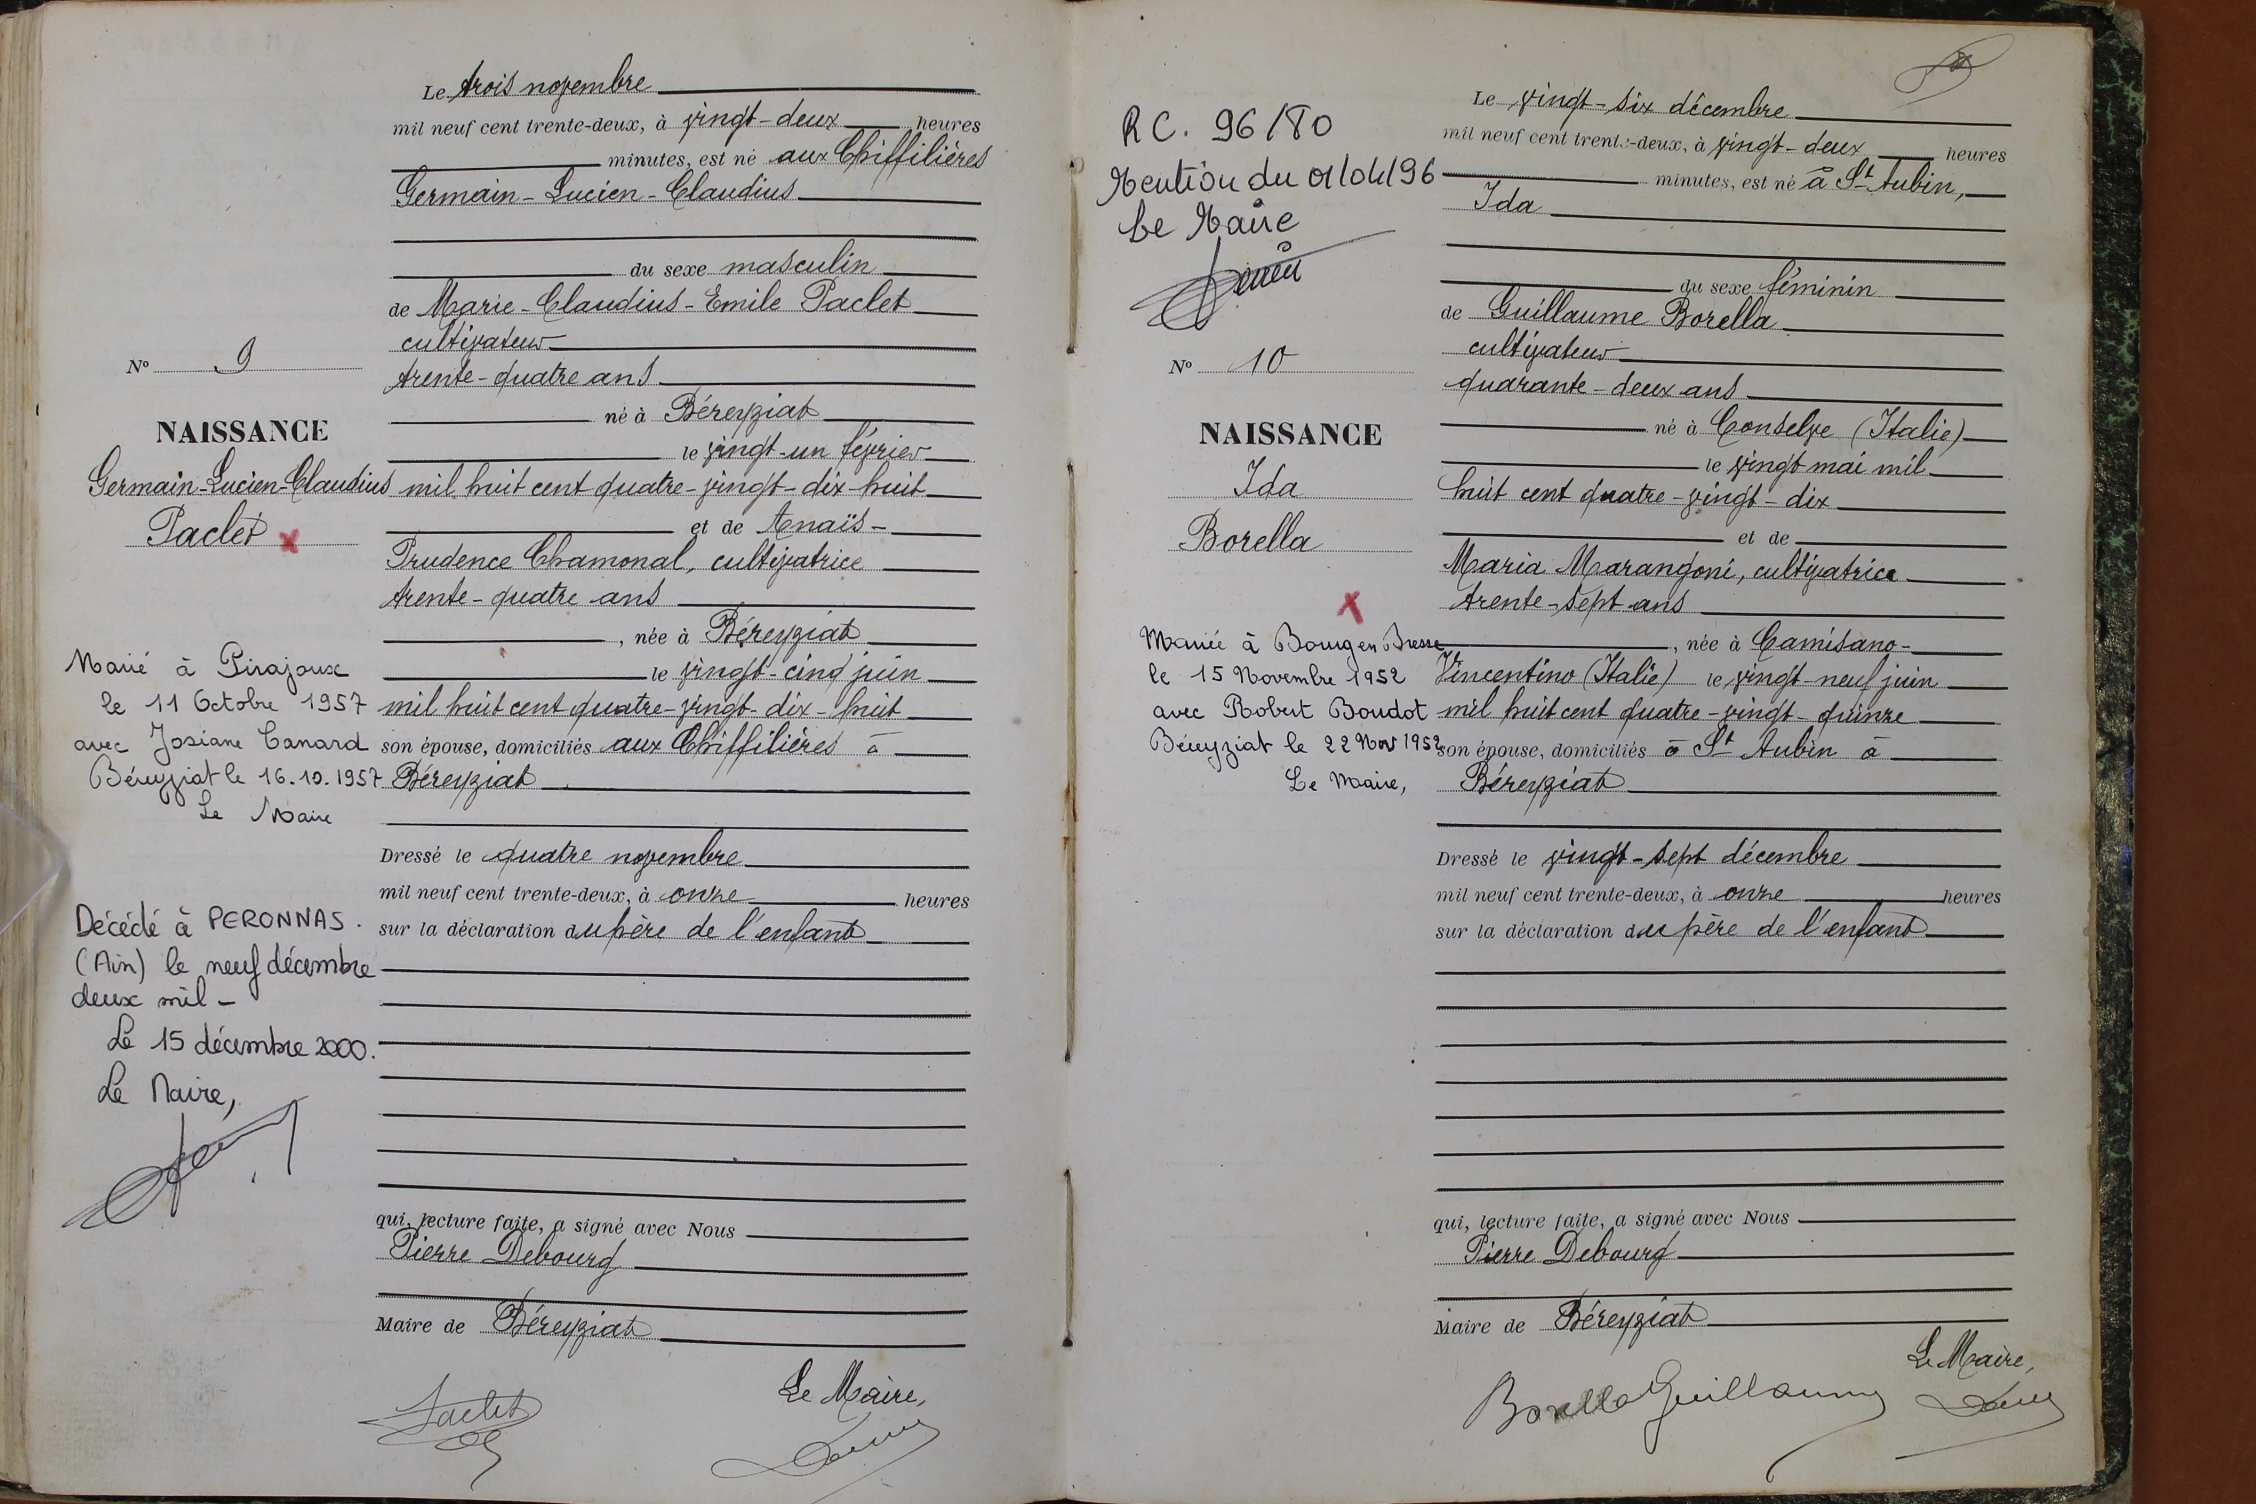 Le trois novembre
mil neuf cent trente-deux, à vingt-deux heures
minutes, est né aux Chiffilières
Germain-Lucien-Claudius
du sexe masculin
de Marie-Claudius-Emile Paclet
cultivateur
trente-quatre ans
né à Béreyziat
le vingt-un février
mil huit cent quatre-vingt-dix-huit
et de Anaïs-
Prudence Chamonal, cultivatrice
trente-quatre ans
, née à Béreyziat
le vingt-cinq juin
mil huit cent quatre-vingt-dix-huit
son épouse, domiciliés aux Chiffilières à
Béreyziat
Dressé le quatre novembre
mil neuf cent trente-deux, à onze heures
sur la déclaration du père de l'enfant
qui, lecture faite, a signé avec Nous
Pierre Debourg
Maire de Béreyziat
Paclet
Le Maire,
No 9
NAISSANCE
Germain-Lucien-Claudius
Paclet
Marié à Pirajoux
le 11 Octobre 1957
avec Josiane Canard
Béreyziat le 16.10.1957
Le Maire
Décédé à PERONNAS.
(Ain) le neuf décembre
deux mil -
Le 15 décembre 2000.
Le Maire,
RC. 96/80
Mention du 01/04/96
Le Maire
No 10
NAISSANCE
Ida
Borella
Mariée à Bourg en Bresse
le 15 Novembre 1952
avec Robert Boudot
Béreyziat le 22 Nov 1952
Le Maire,
Le vingt-six décembre
mil neuf cent trente-deux, à vingt-deux heures
minutes, est né à St Aubin,
Ida
du sexe féminin
de Guillaume Borella
cultivateur
quarante-deux ans
né à Conselve (Italie)
le vingt mai mil
huit cent quatre-vingt-dix
et de
Maria Marangoni, cultivatrice
trente-sept ans
, née à Camisano-
Vincentino (Italie) le vingt-neuf juin
mil huit cent quatre-vingt-quinze
son épouse, domiciliés à St Aubin à
Béreyziat
Dressé le vingt-sept décembre
mil neuf cent trente-deux, à onze heures
sur la déclaration du père de l'enfant
qui, lecture faite, a signé avec Nous
Pierre Debourg
Maire de Béreyziat
Le Maire,
Borella Guillaume